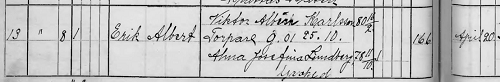 Viktor Albin Karlsson 80 11/2
13 " 8 1 Erik Albert Torpare g. 01 25. 10. 166 April 20
Alma Josefina Lundberg 78 11/10 1